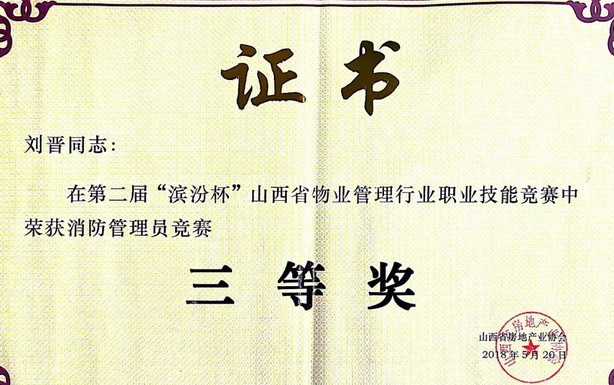 证书
刘晋同志：
在第二届“滨汾杯”山西省物业管理行业职业技能竞赛中
荣获消防管理员竞赛
三等奖
山西省房地产业协会
2018年5月20日